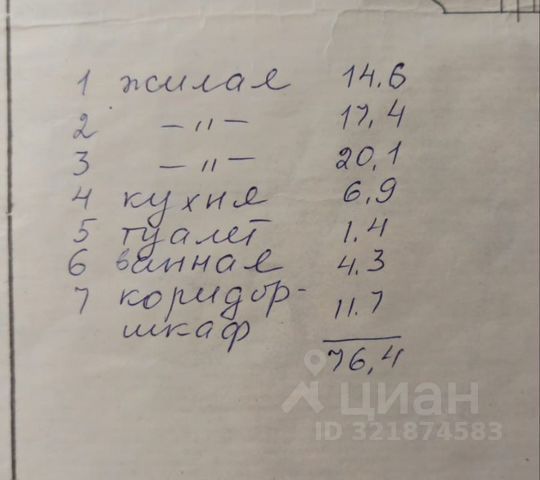 1 жилая 14.6
2 —"— 17,4
3 —"— 20,1
4 кухня 6,9
5 туалет 1.4
6 ванная 4.3
7 коридор- 11.7
шкаф
76,4
циан
ID 321874583